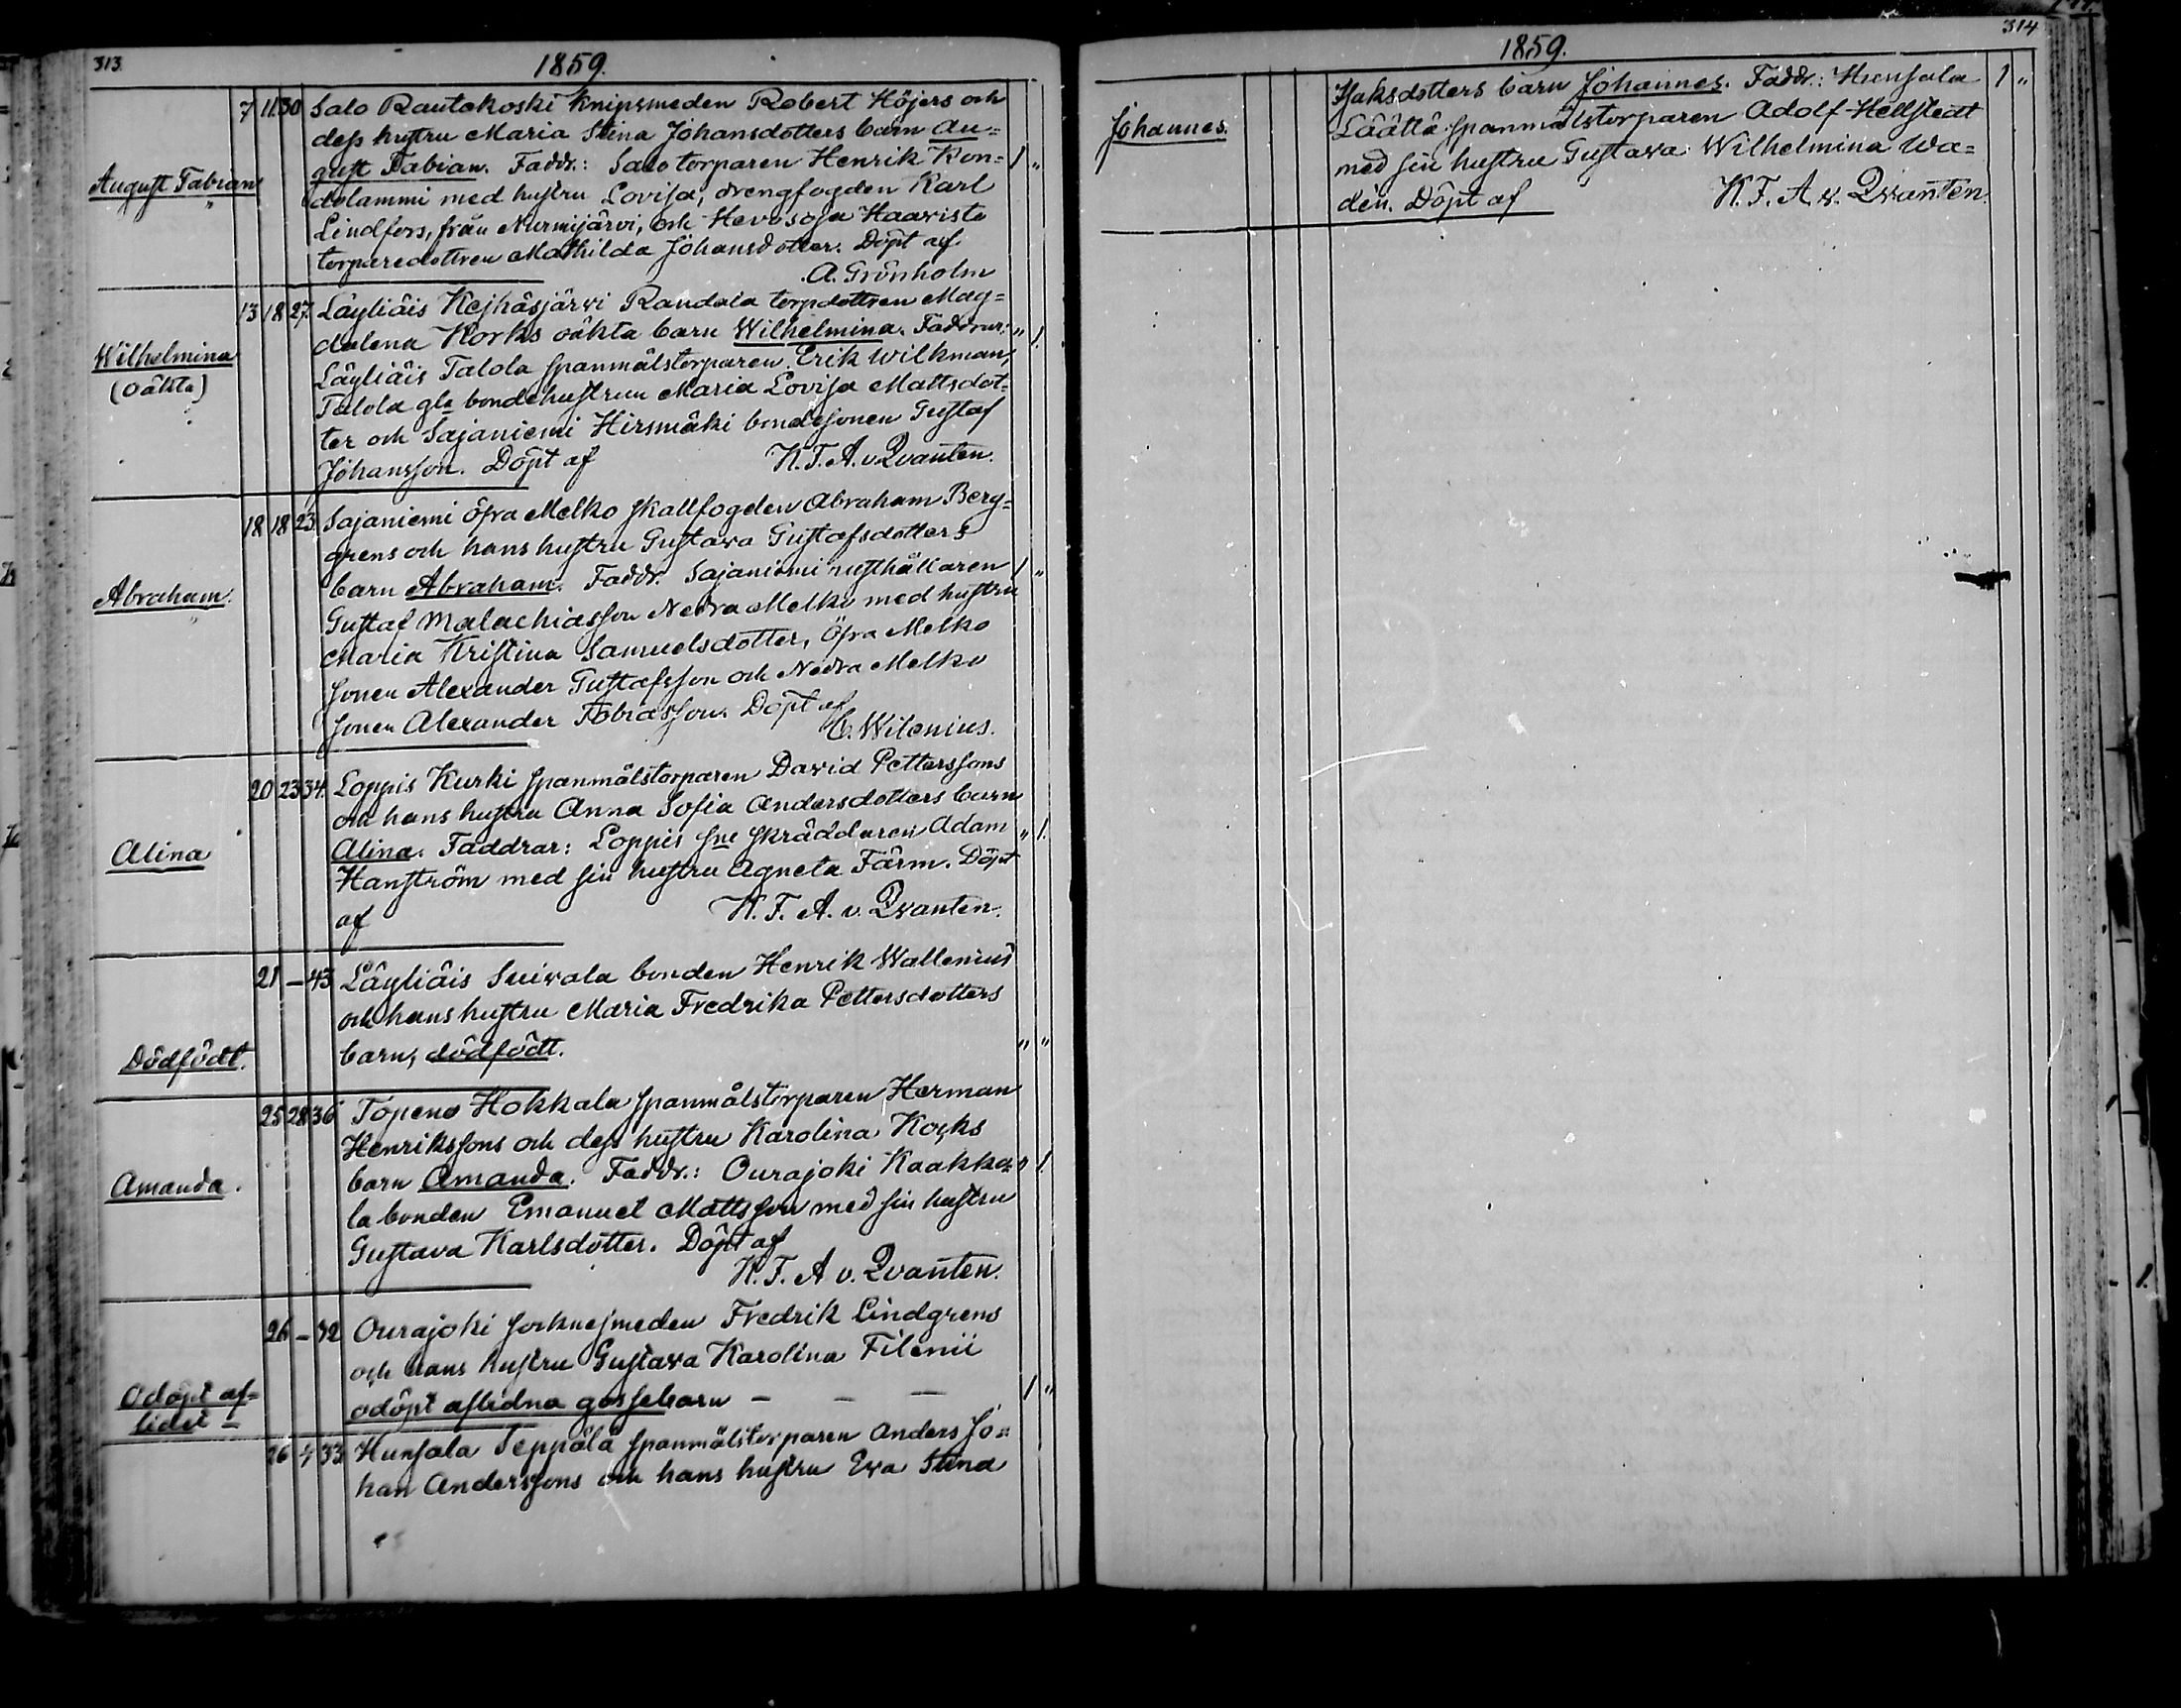 313.
1859.
August Fabian
7 11. 30 Salo Rautakoski knipsmeden Robert Höjers och
dess hustru Maria Stina Johansdotters barn Au=
gust Fabian. Faddr.: Salo torparen Henrik Kon= 1 "
dolammi med hustru Lovisa, drengfogden Karl
Lindfors, från Nurmijärvi, och Hevosoja Haavisto
torparedottren Mathilda Johansdotter. Döpt af
A. Grönholm
Wilhelmina
(oäkta)
13 18 27. Läyliäis Kejhäsjärvi Randala torpdottren Mag=
dalena Korks oäkta barn Wilhelmina. Faddrar: " 1.
Läyliäis Talola spanmålstorparen Erik Wilkman,
Talola gla bondehustrun Maria Lovisa Mattsdot=
ter och Sajaniemi Hirsmäki bondesonen Gustaf
Johansson. Döpt af K. F. A. v. Qvanten.
Abraham.
18 18 23 Sajaniemi öfra Melko skallfogden Abraham Berg=
grens och hans hustru Gustava Gustafsdotters
barn Abraham. Faddr. Sajaniemi rusthållaren 1 "
Gustaf Malachiasson Nedra Melko med hustru
Maria Kristina Samuelsdotter, Öfra Melko
sonen Alexander Gustafsson och Nedra Melko
sonen Alexander Tobiasson. Döpt af
C. Wilenius.
Alina
20 23 34. Loppis Kurki spanmålstorparen David Petterssons
och hans hustru Anna Sofia Andersdotters barn
Alina. Faddrar: Loppis sne skräddaren Adam " 1.
Hanström med sin hustru Agneta Färm. Döpt
af K. F. A. v. Qvanten.
Dödfödt.
21 — 43 Läyliäis Suivala bonden Henrik Wallenius
och hans hustru Maria Fredrika Pettersdotters
barn, dödfödt. " "
Amanda.
25 28 36 Topeno Hokkala spanmålstorparen Herman
Henrikssons och dess hustru Karolina Korks
barn Amanda. Faddr.: Ourajoki Kaakko= " 1.
la bonden Emanuel Mattsson med sin hustru
Gustava Karlsdotter. Döpt af
K. F. A v. Qvanten.
Odöpt af=
lidet —
26 — 32 Ourajoki socknesmeden Fredrik Lindgrens
och hans hustru Gustava Karolina Filenii
odöpt aflidna gossebarn — — — 1 "
26 33 Hunsala Teppälä spanmålstorparen Anders Jo=
han Anderssons och hans hustru Eva Stina
314
1859.
Johannes.
Isaksdotters barn Johannes. Faddr.: Hunsala 1 "
Läättä spanmålstorparen Adolf Hellstedt
med sin hustru Gustava Wilhelmina Wa=
den. Döpt af K. F. A. v. Qvanten.